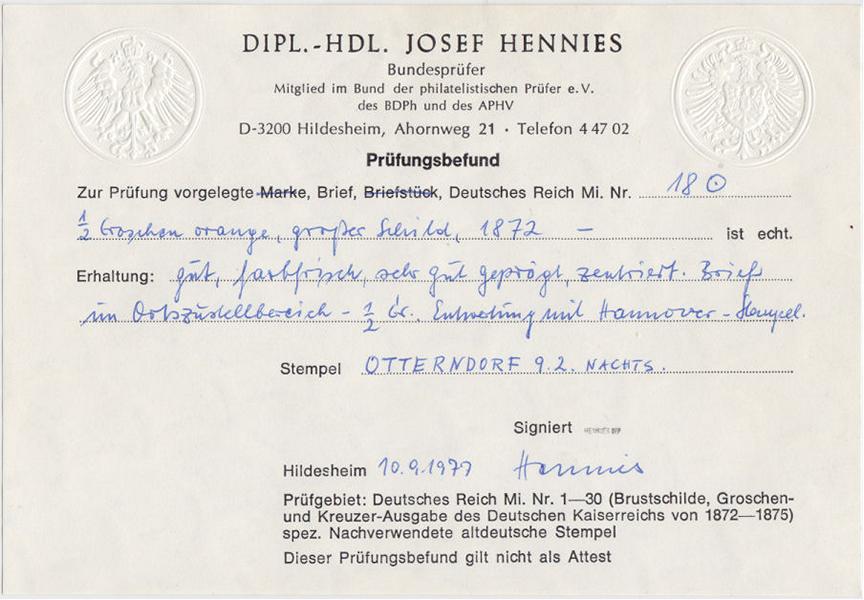 DIPL.-HDL. JOSEF HENNIES
Bundesprüfer
Mitglied im Bund der philatelistischen Prüfer e.V.
des BDPh und des APHV
D-3200 Hildesheim, Ahornweg 21 · Telefon 4 47 02
Prüfungsbefund
Zur Prüfung vorgelegte Marke, Brief, Briefstück, Deutsches Reich Mi. Nr. 18 ⊙
1/2 Groschen orange, großer Schild, 1872 — ist echt.
Erhaltung: gut, farbfrisch, sehr gut geprägt, zentriert. Brief
im Ortszustellbereich - 1/2 Gr. Entwertung mit Hannover-Stempel.
Stempel OTTERNDORF 9.2. NACHTS.
Signiert HENNIES BPP
Hildesheim 10.9.1977 Hennies
Prüfgebiet: Deutsches Reich Mi. Nr. 1—30 (Brustschilde, Groschen-
und Kreuzer-Ausgabe des Deutschen Kaiserreichs von 1872—1875)
spez. Nachverwendete altdeutsche Stempel
Dieser Prüfungsbefund gilt nicht als Attest